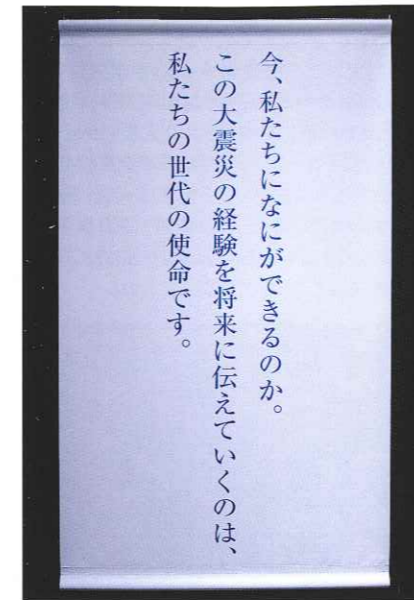 今、私たちになにができるのか。
この大震災の経験を将来に伝えていくのは、
私たちの世代の使命です。